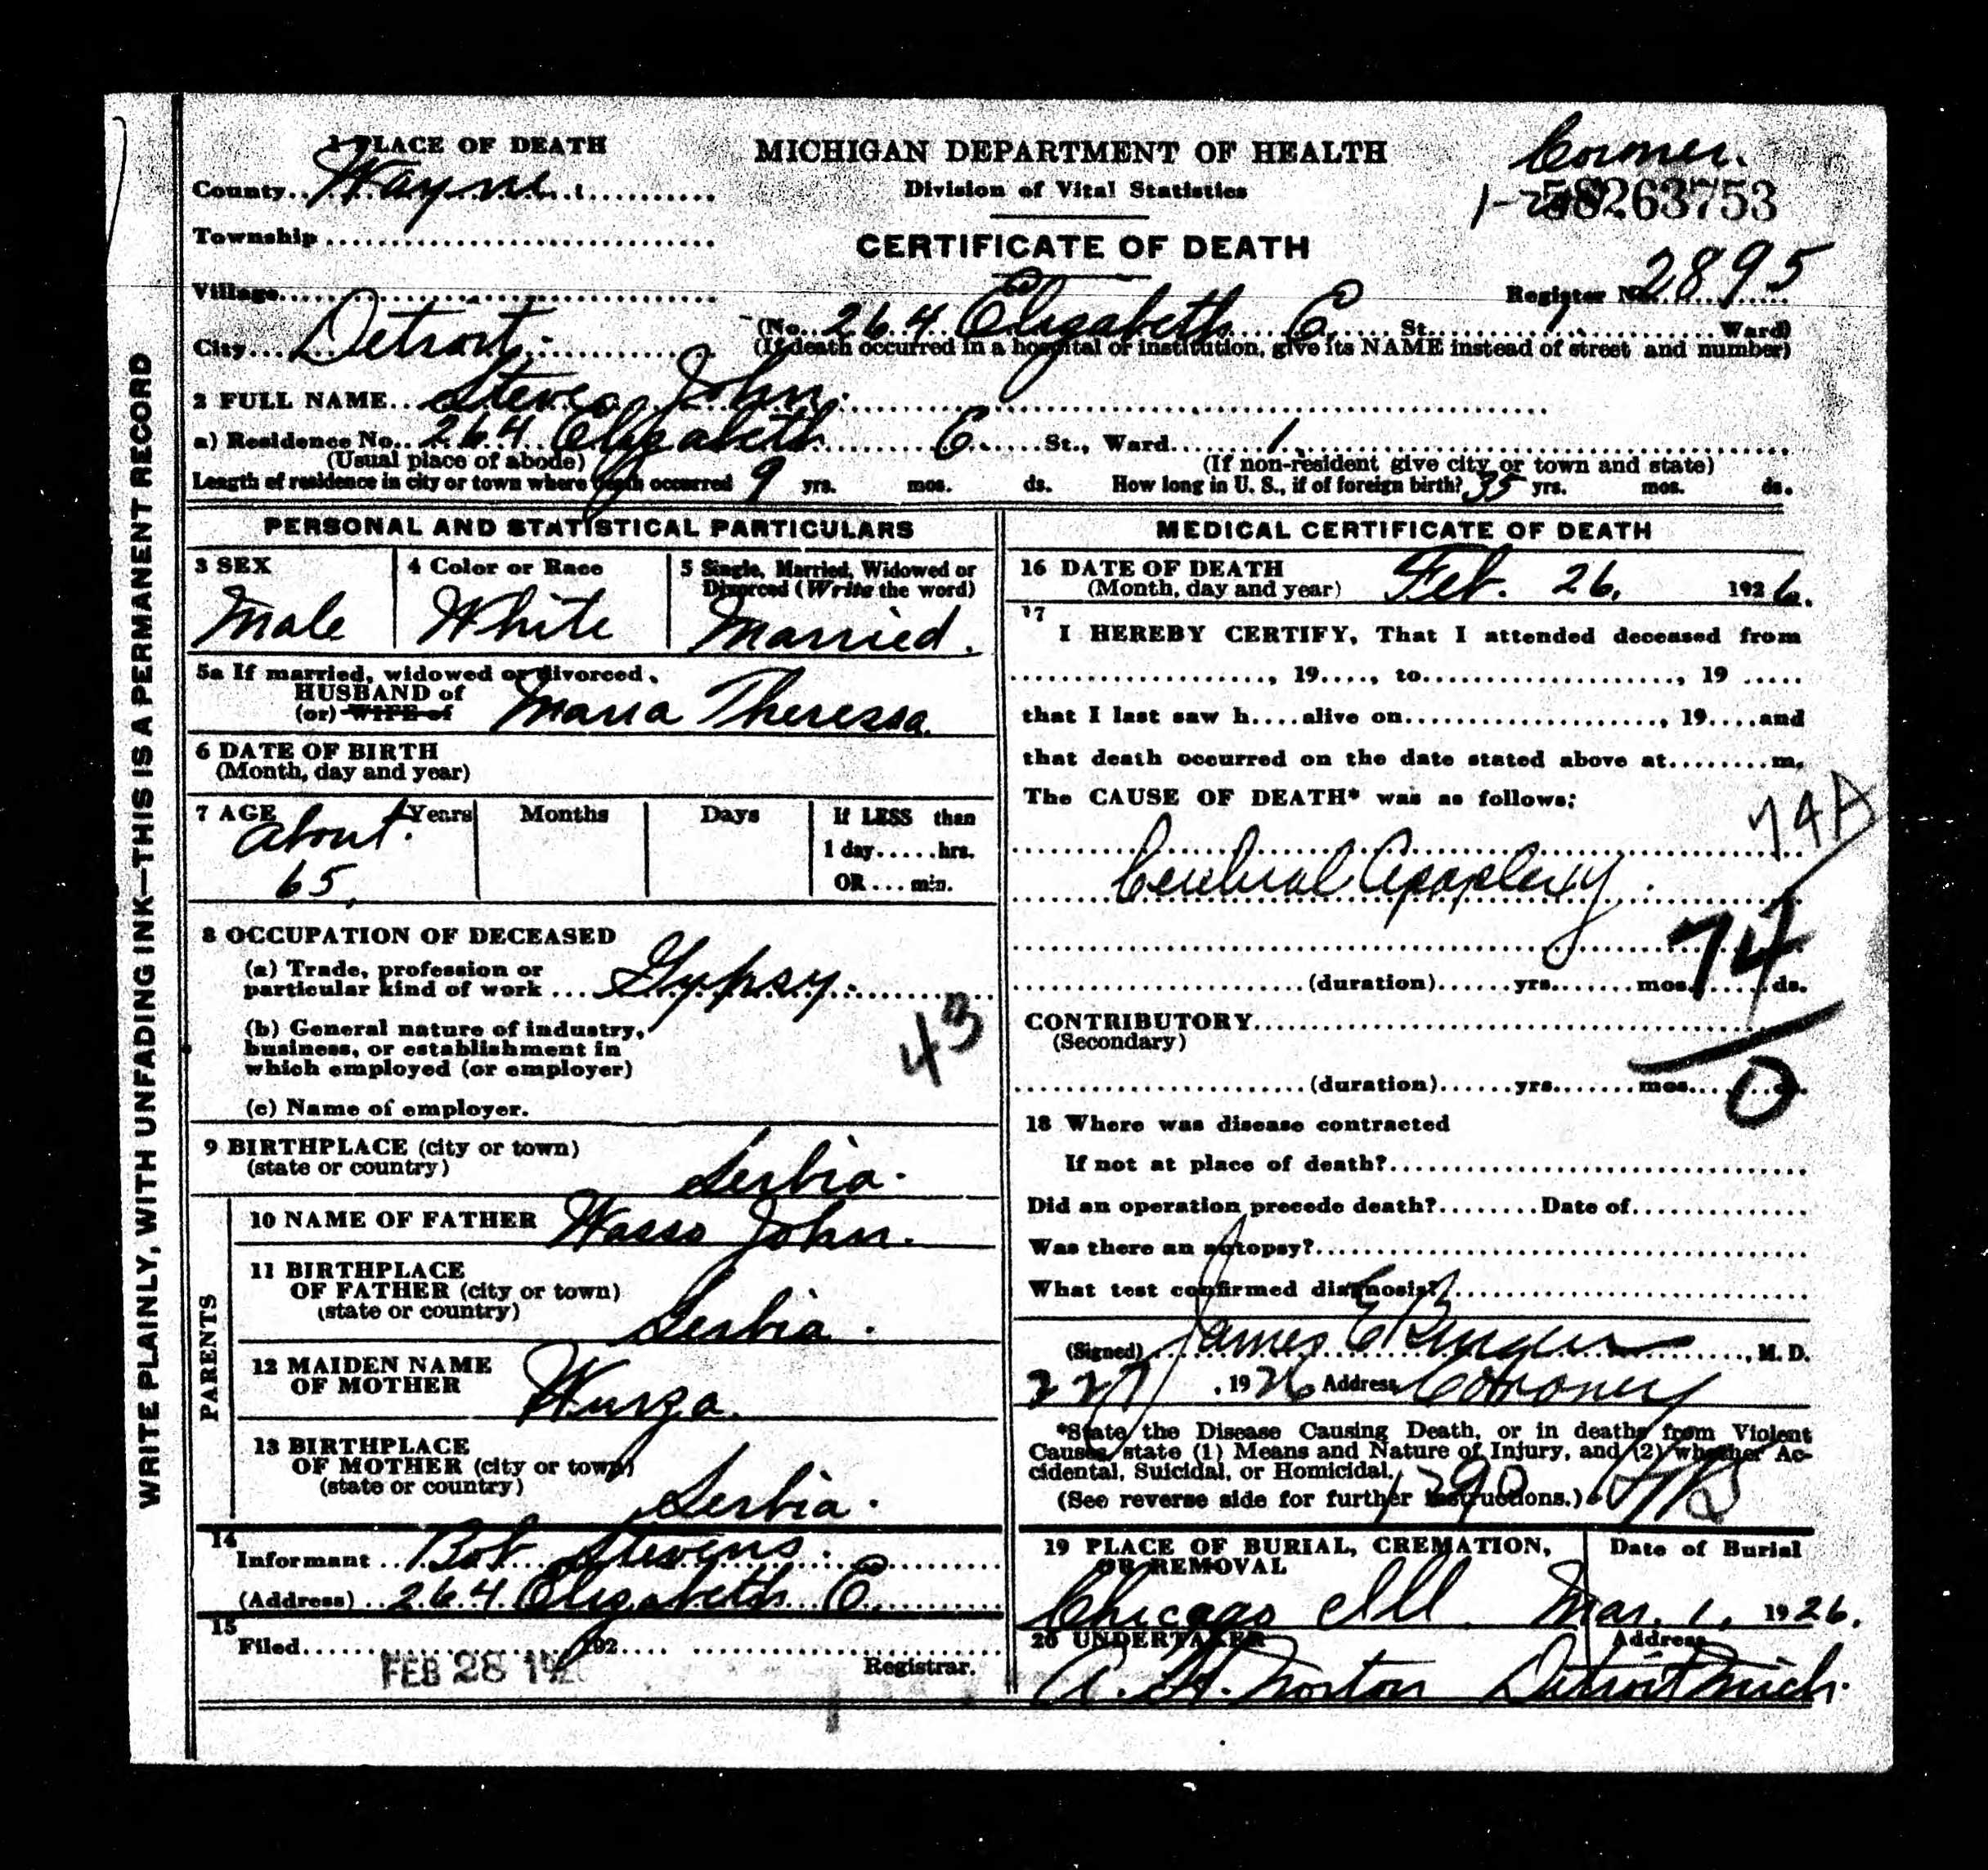 Coroner.
1 PLACE OF DEATH
County Wayne
MICHIGAN DEPARTMENT OF HEALTH
Division of Vital Statistics
58263753
Township
CERTIFICATE OF DEATH
Village
Register No. 2895
City Detroit. (No. 264 Elizabeth E St. 1, Ward)
(If death occurred in a hospital or institution, give its NAME instead of street and number)
2 FULL NAME Steve John.
a) Residence No. 264 Elizabeth E. St., Ward 1.
(Usual place of abode) (If non-resident give city or town and state)
Length of residence in city or town where death occurred 9 yrs. mos. ds. How long in U. S., if of foreign birth? 35 yrs. mos. ds.
WRITE PLAINLY, WITH UNFADING INK—THIS IS A PERMANENT RECORD
PERSONAL AND STATISTICAL PARTICULARS
3 SEX
Male
4 Color or Race
White
5 Single, Married, Widowed or
Divorced (Write the word)
Married.
5a If married, widowed or divorced,
HUSBAND of
(or) WIFE of Maria Theressa.
6 DATE OF BIRTH
(Month, day and year)
7 AGE Years Months Days If LESS than
about 1 day......hrs.
65, OR ... min.
8 OCCUPATION OF DECEASED
(a) Trade, profession or
particular kind of work Gypsy.
43
(b) General nature of industry,
business, or establishment in
which employed (or employer)
(c) Name of employer.
9 BIRTHPLACE (city or town)
(state or country) Serbia.
PARENTS
10 NAME OF FATHER Wasso John.
11 BIRTHPLACE
OF FATHER (city or town)
(state or country) Serbia.
12 MAIDEN NAME
OF MOTHER Wurza.
13 BIRTHPLACE
OF MOTHER (city or town)
(state or country) Serbia.
14
Informant Bob Stevens.
(Address) 264 Elizabeth E.
15
Filed 192
FEB 28
Registrar.
MEDICAL CERTIFICATE OF DEATH
16 DATE OF DEATH
(Month, day and year) Feb. 26, 1926.
17
I HEREBY CERTIFY, That I attended deceased from
, 19...., to , 19 .....
that I last saw h....alive on , 19....and
that death occurred on the date stated above at........m.
The CAUSE OF DEATH* was as follows:
74A
Cerebral Apoplexy.
74
(duration)......yrs.......mos.......ds.
CONTRIBUTORY
(Secondary)
(duration)......yrs.......mos.......ds.
0
18 Where was disease contracted
If not at place of death?
Did an operation precede death?........Date of
Was there an autopsy?
What test confirmed diagnosis?
(Signed) James E , M. D.
227, 1926 Address Coroner
*State the Disease Causing Death, or in deaths from Violent
Causes state (1) Means and Nature of Injury, and (2) whether Ac-
cidental, Suicidal, or Homicidal.
(See reverse side for further instructions.)
19 PLACE OF BURIAL, CREMATION,
OR REMOVAL
Date of Burial
Chicago Ill. Mar. 1, 1926.
20 UNDERTAKER Address
A. H. Norton Detroit Mich.